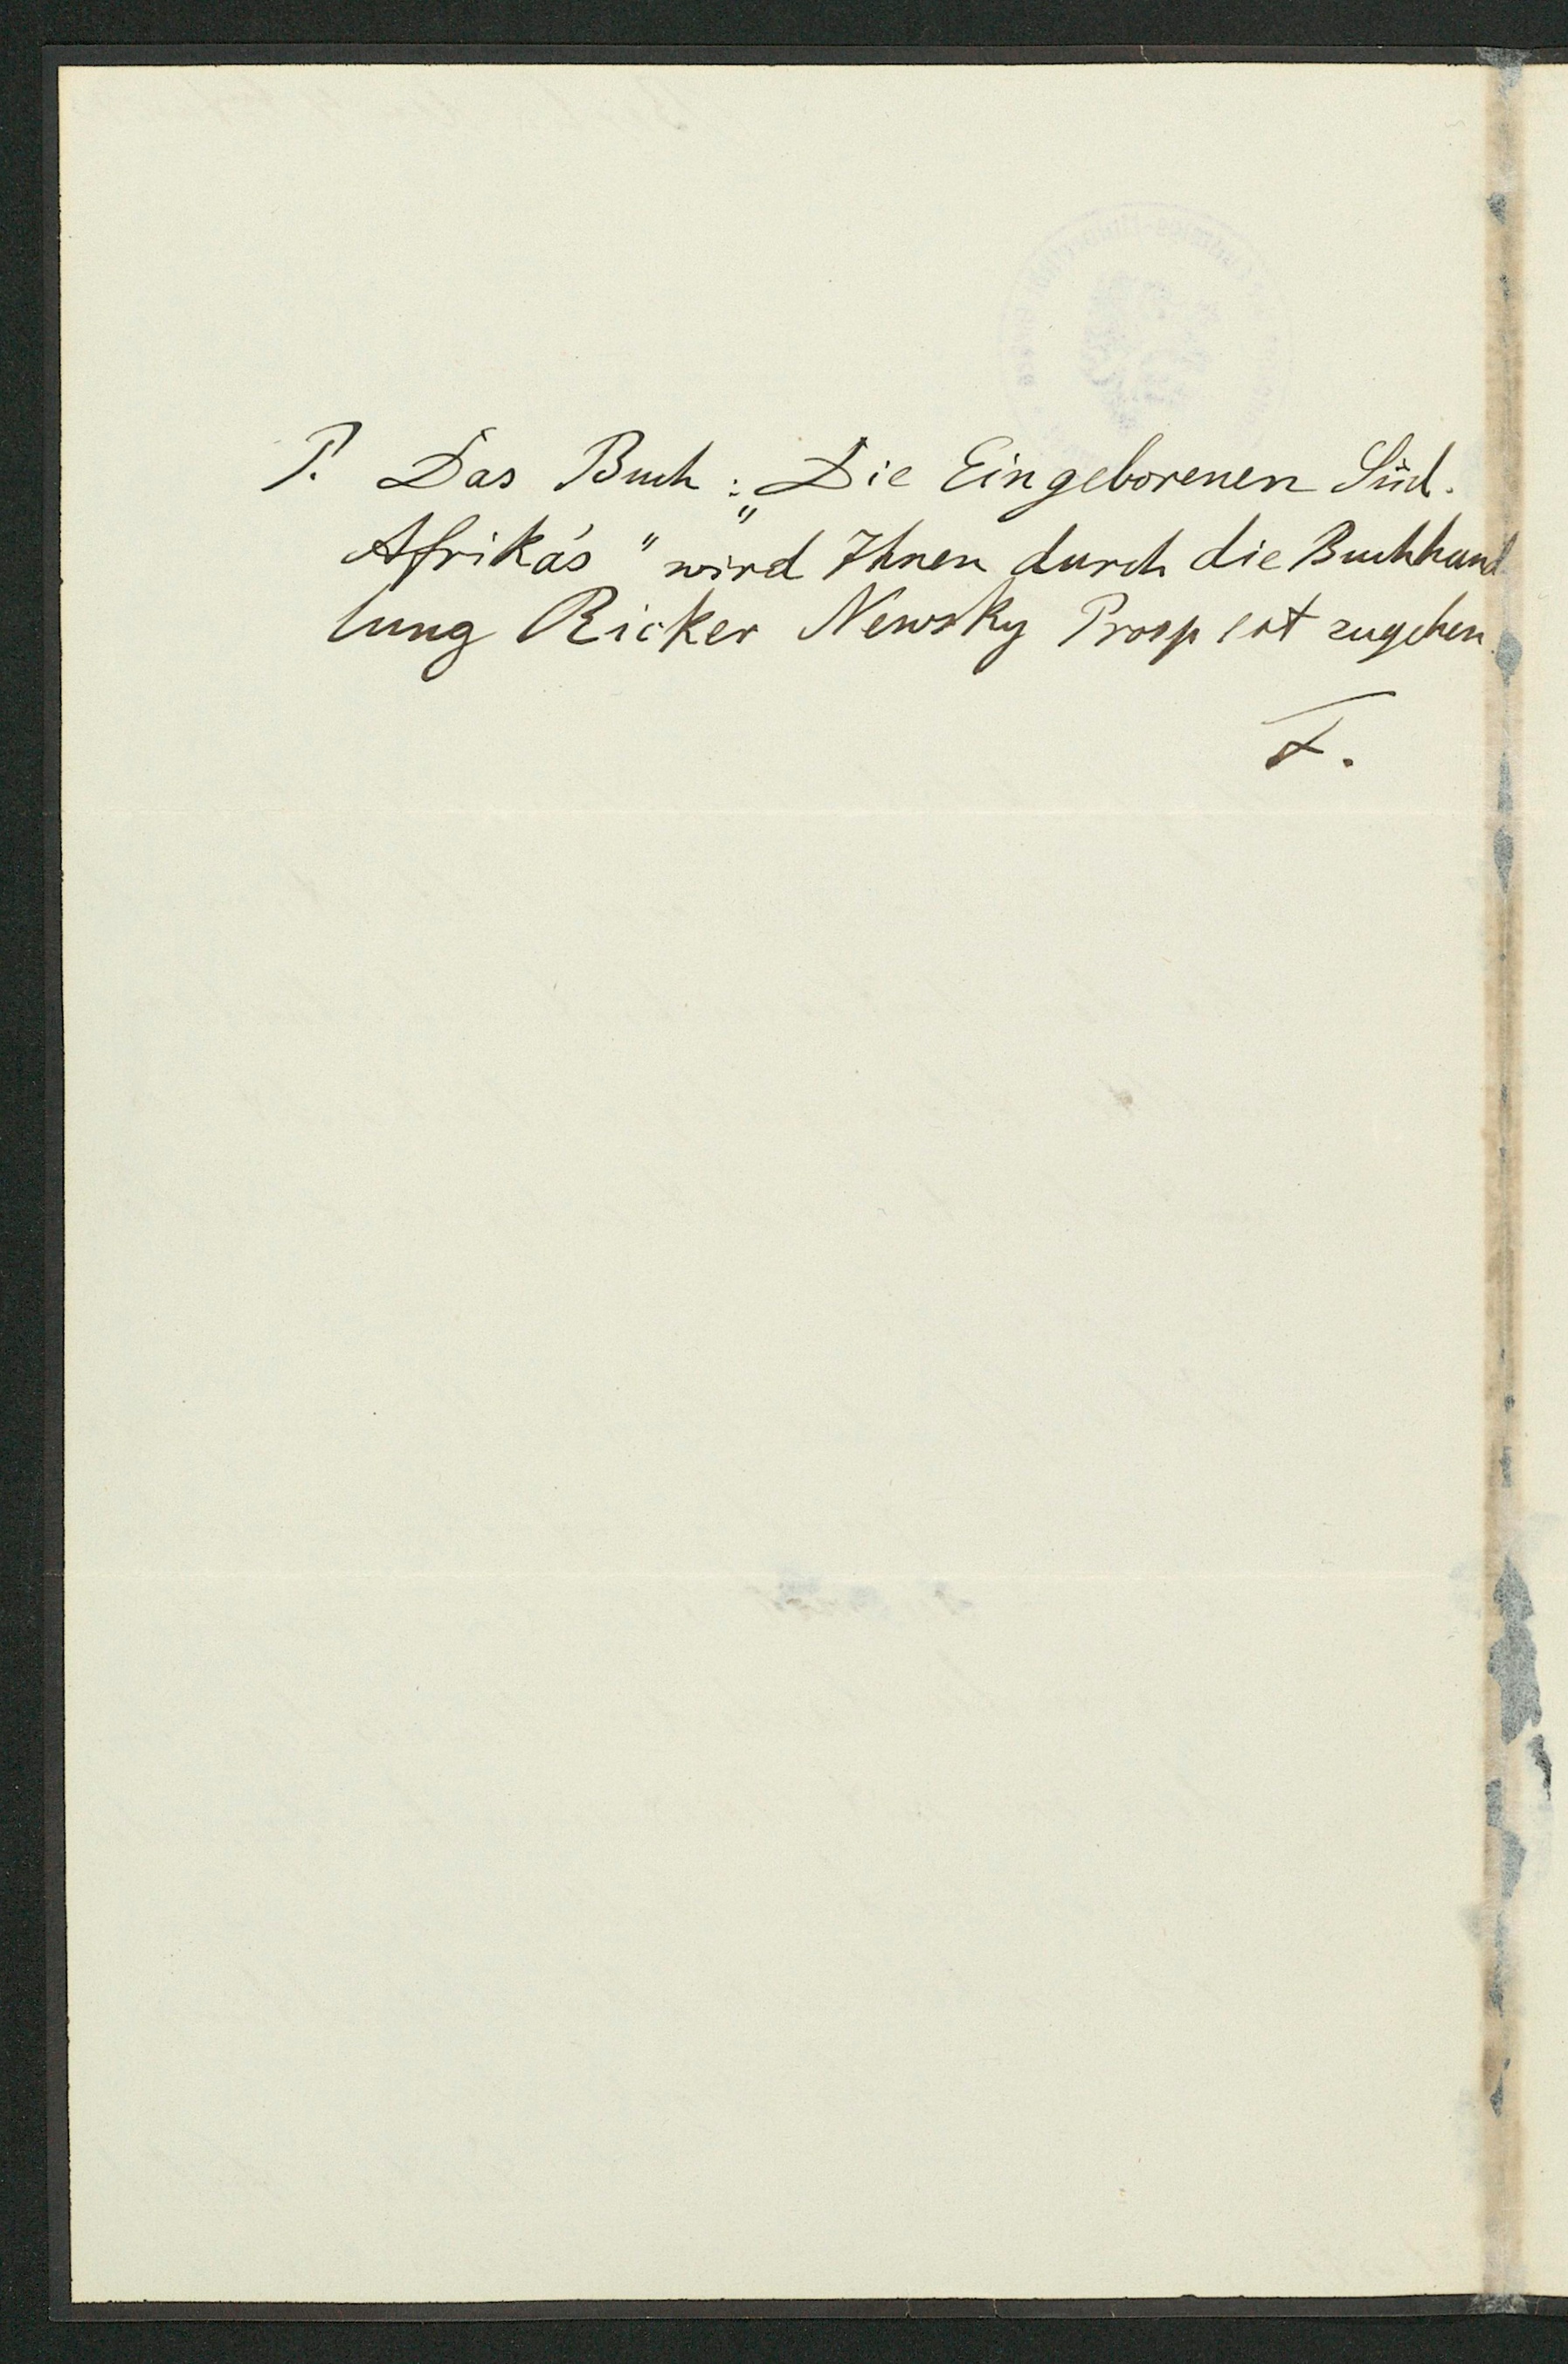 P. Das Buch: „Die Eingeborenen Süd-
Afrika's" wird Ihnen durch die Buchhand-
lung Ricker Newsky Prospect zugehen.
F.